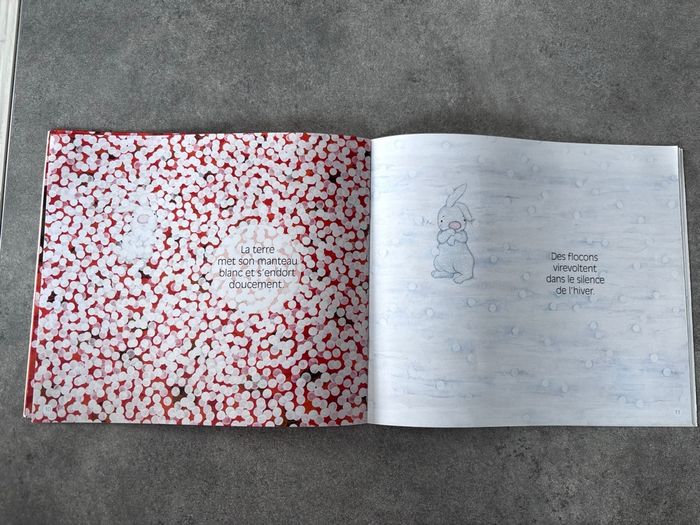 La terre
met son manteau
blanc et s'endort
doucement.
Des flocons
virevoltent
dans le silence
de l'hiver.
11